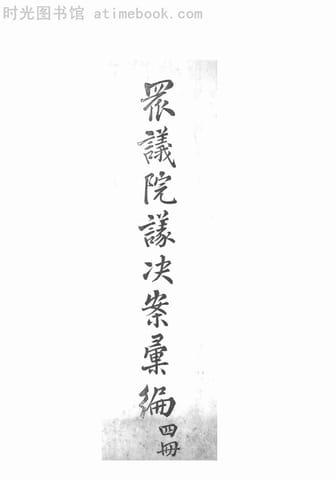 时光图书馆 atimebook.com
眾議院議决案彙編
四冊